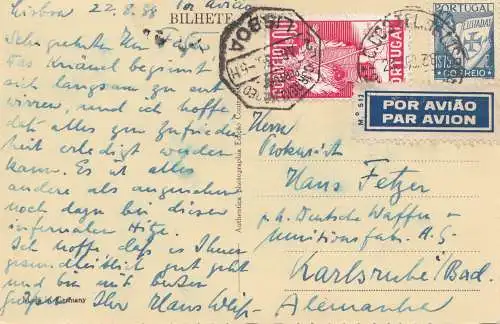 Lisboa 22.8.38 Por Avião
BILHETE
Sehr geehrter Herr Fetzer
Das Knäuel beginnt
sich langsam zu ent
wirren, und ich hoffe
dass alles zur Zufrieden
heit erledigt werden
kann. Es ist alles
andere als angenehm
noch dazu bei dieser
infernalen Hitze.
Ich hoffe dass es Ihnen
gesundheitlich gut geht
und bin mit besten
Grüssen Ihr Hans
Made in Germany
LISBOA
PORTUGAL
PORTUGAL
LUSIADAS
1$75
CORREIO
Mº 51
POR AVIÃO
PAR AVION
Herrn
Prokurist
Hans Fetzer
p.A. Deutsche Waffen u
Munitionsfabr. A.G.
Karlsruhe/Bad.
Alemanha